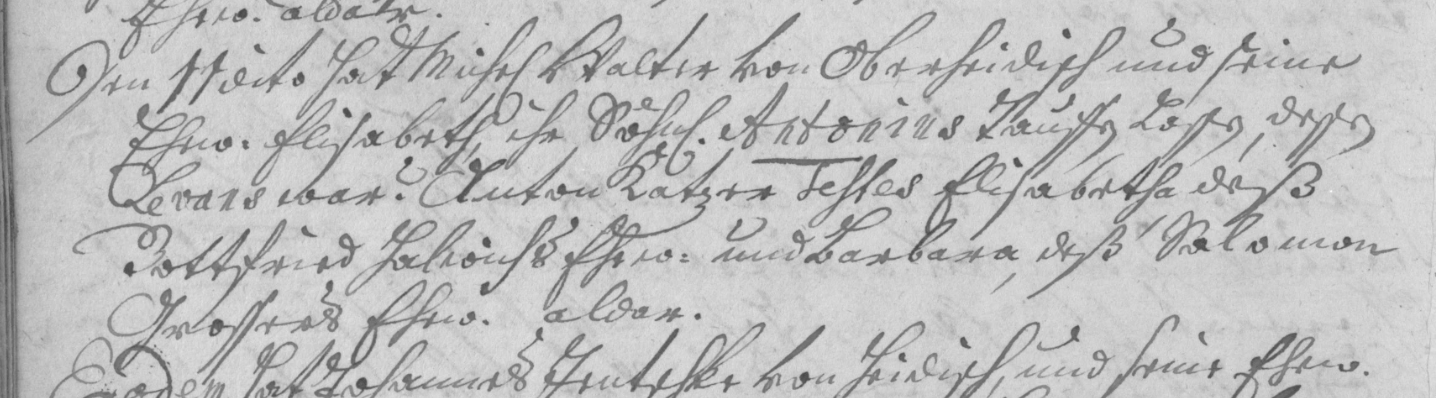 Ehew. aldar.
Den 11 dito hat Michel Walter von Oberheidisch und seine
Ehew. Elisabeth, ihr Söhnl. Antonius tauffen lassen, dessen
Levans war: Anton Katzer Testes Elisabetha deß
Gottfried Ehew: und Barbara, deß Salomon
Grossers Ehew. aldar.
Eodem hat Johannes Jentschke von Heidisch, und seine Ehew.